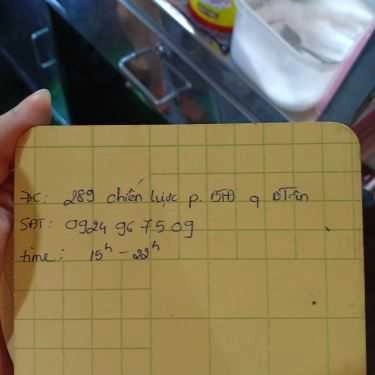 ĐC: 289 chiến lược p. BTĐ q BTân
SĐT: 0924 96 75 09
time: 15h - 22h